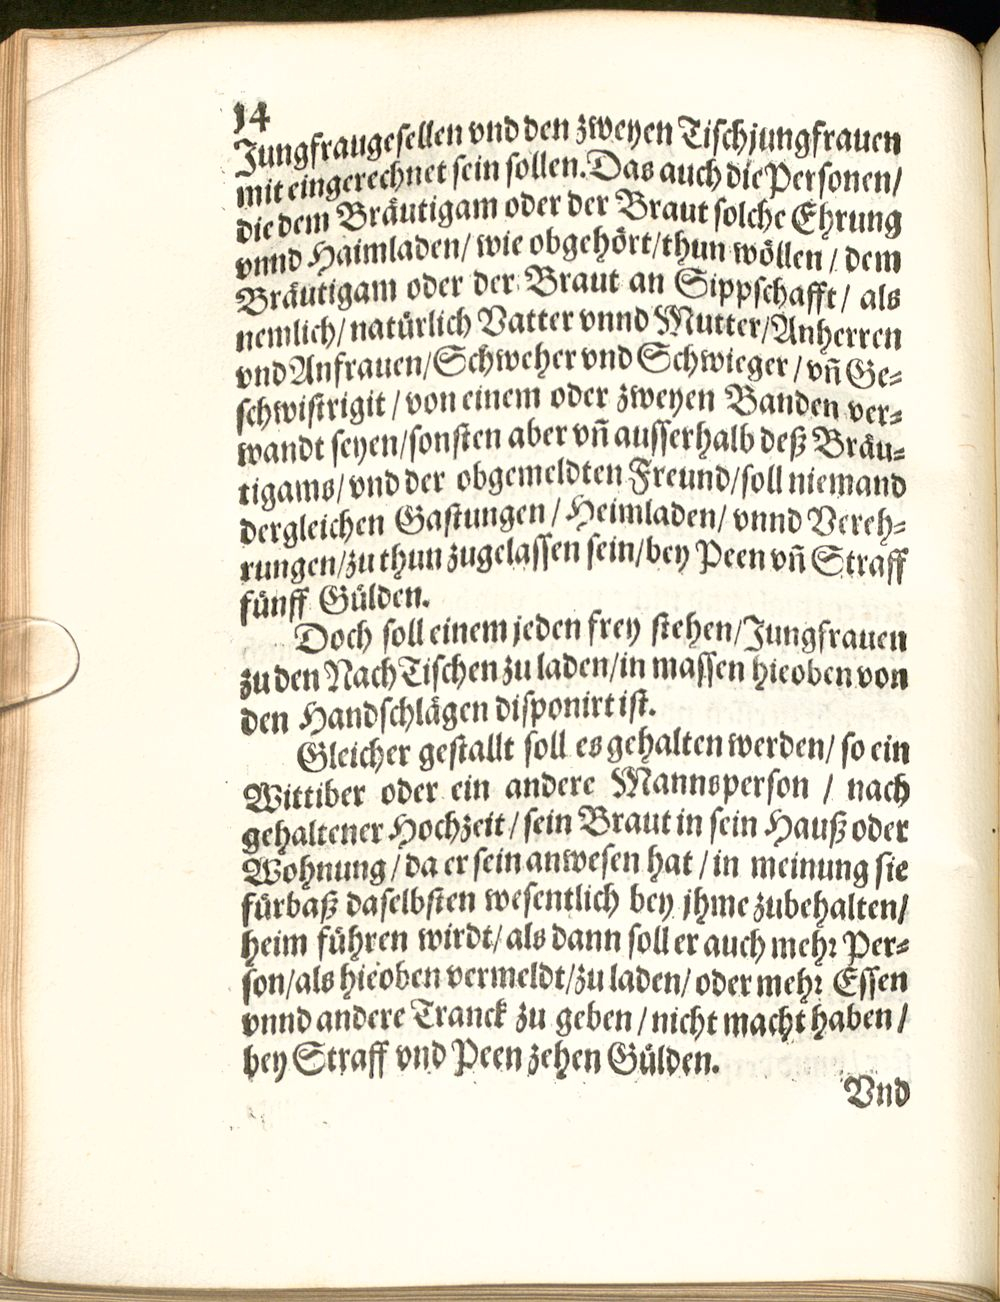 14
Jungfraugesellen vnd den zweyen Tischjungfrauen
mit eingerechnet sein sollen. Das auch die Personen/
die dem Bräutigam oder der Braut solche Ehrung
vnnd Haimladen/ wie obgehört/ thun wöllen / dem
Bräutigam oder der Braut an Sippschafft / als
nemlich/ natürlich Vatter vnnd Mutter/ Anherren
vnd Anfrauen/ Schweher vnd Schwieger / vñ Ge-
schwistrigit / von einem oder zweyen Banden ver-
wandt seyen/ sonsten aber vñ ausserhalb deß Bräu-
tigams/ vnd der obgemeldten Freund/ soll niemand
dergleichen Gastungen / Heimladen/ vnnd Vereh-
rungen/ zu thun zugelassen sein/ bey Peen vñ Straff
fünff Gülden.
Doch soll einem jeden frey stehen/ Jungfrauen
zu den NachTischen zu laden/ in massen hieoben von
den Handschlägen disponirt ist.
Gleicher gestallt soll es gehalten werden/ so ein
Wittiber oder ein andere Mannsperson / nach
gehaltener Hochzeit / sein Braut in sein Hauß oder
Wohnung / da er sein anwesen hat / in meinung sie
fürbaß daselbsten wesentlich bey jhme zubehalten/
heim führen wirdt/ als dann soll er auch mehr Per-
son/ als hieoben vermeldt/ zu laden/ oder mehr Essen
vnnd andere Tranck zu geben / nicht macht haben /
bey Straff vnd Peen zehen Gülden.
Vnd